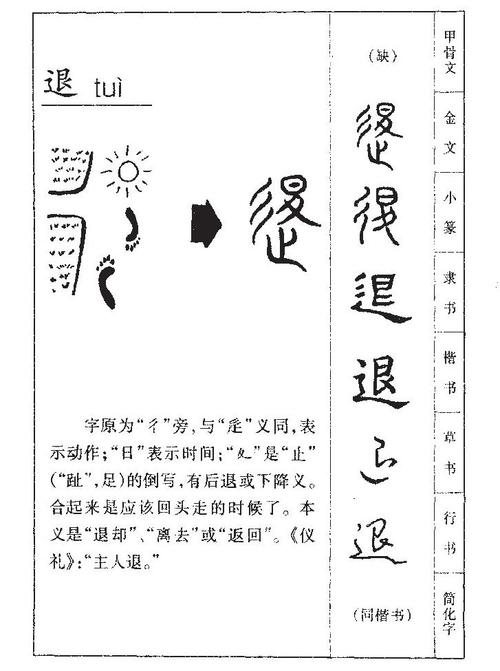 退 tuì
字原为“彳”旁,与“辵”义同,表
示动作;“日”表示时间;“夊”是“止”
(“趾”,足)的倒写,有后退或下降义。
合起来是应该回头走的时候了。本
义是“退却”、“离去”或“返回”。《仪
礼》:“主人退。”
(缺)
退
退
退
退
退
退
(同楷书)
甲骨文
金文
小篆
隶书
楷书
草书
行书
简化字